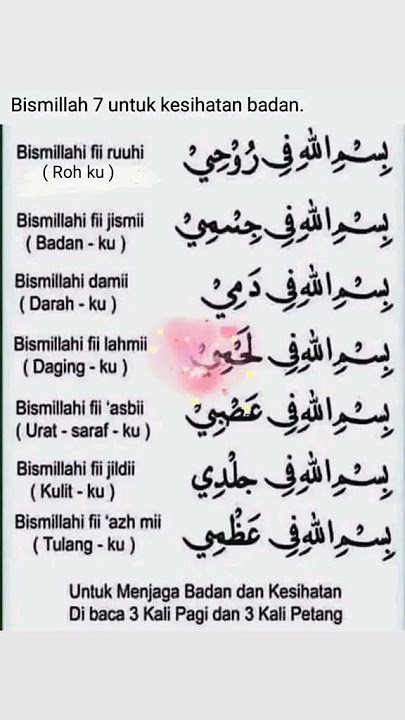 Bismillah 7 untuk kesihatan badan.
Bismillahi fii ruuhi
( Roh ku )
بِسْمِ اللهِ فِي رُوْحِيْ
Bismillahi fii jismii
( Badan - ku )
بِسْمِ اللهِ فِي جِسْمِيْ
Bismillahi damii
( Darah - ku )
بِسْمِ اللهِ فِي دَمِيْ
Bismillahi fii lahmii
( Daging - ku )
بِسْمِ اللهِ فِي لَحْمِيْ
Bismillahi fii 'asbii
( Urat - saraf - ku )
بِسْمِ اللهِ فِي عَصْبِيْ
Bismillahi fii jildii
( Kulit - ku )
بِسْمِ اللهِ فِي جِلْدِي
Bismillahi fii 'azh mii
( Tulang - ku )
بِسْمِ اللهِ فِي عَظْمِي
Untuk Menjaga Badan dan Kesihatan
Di baca 3 Kali Pagi dan 3 Kali Petang